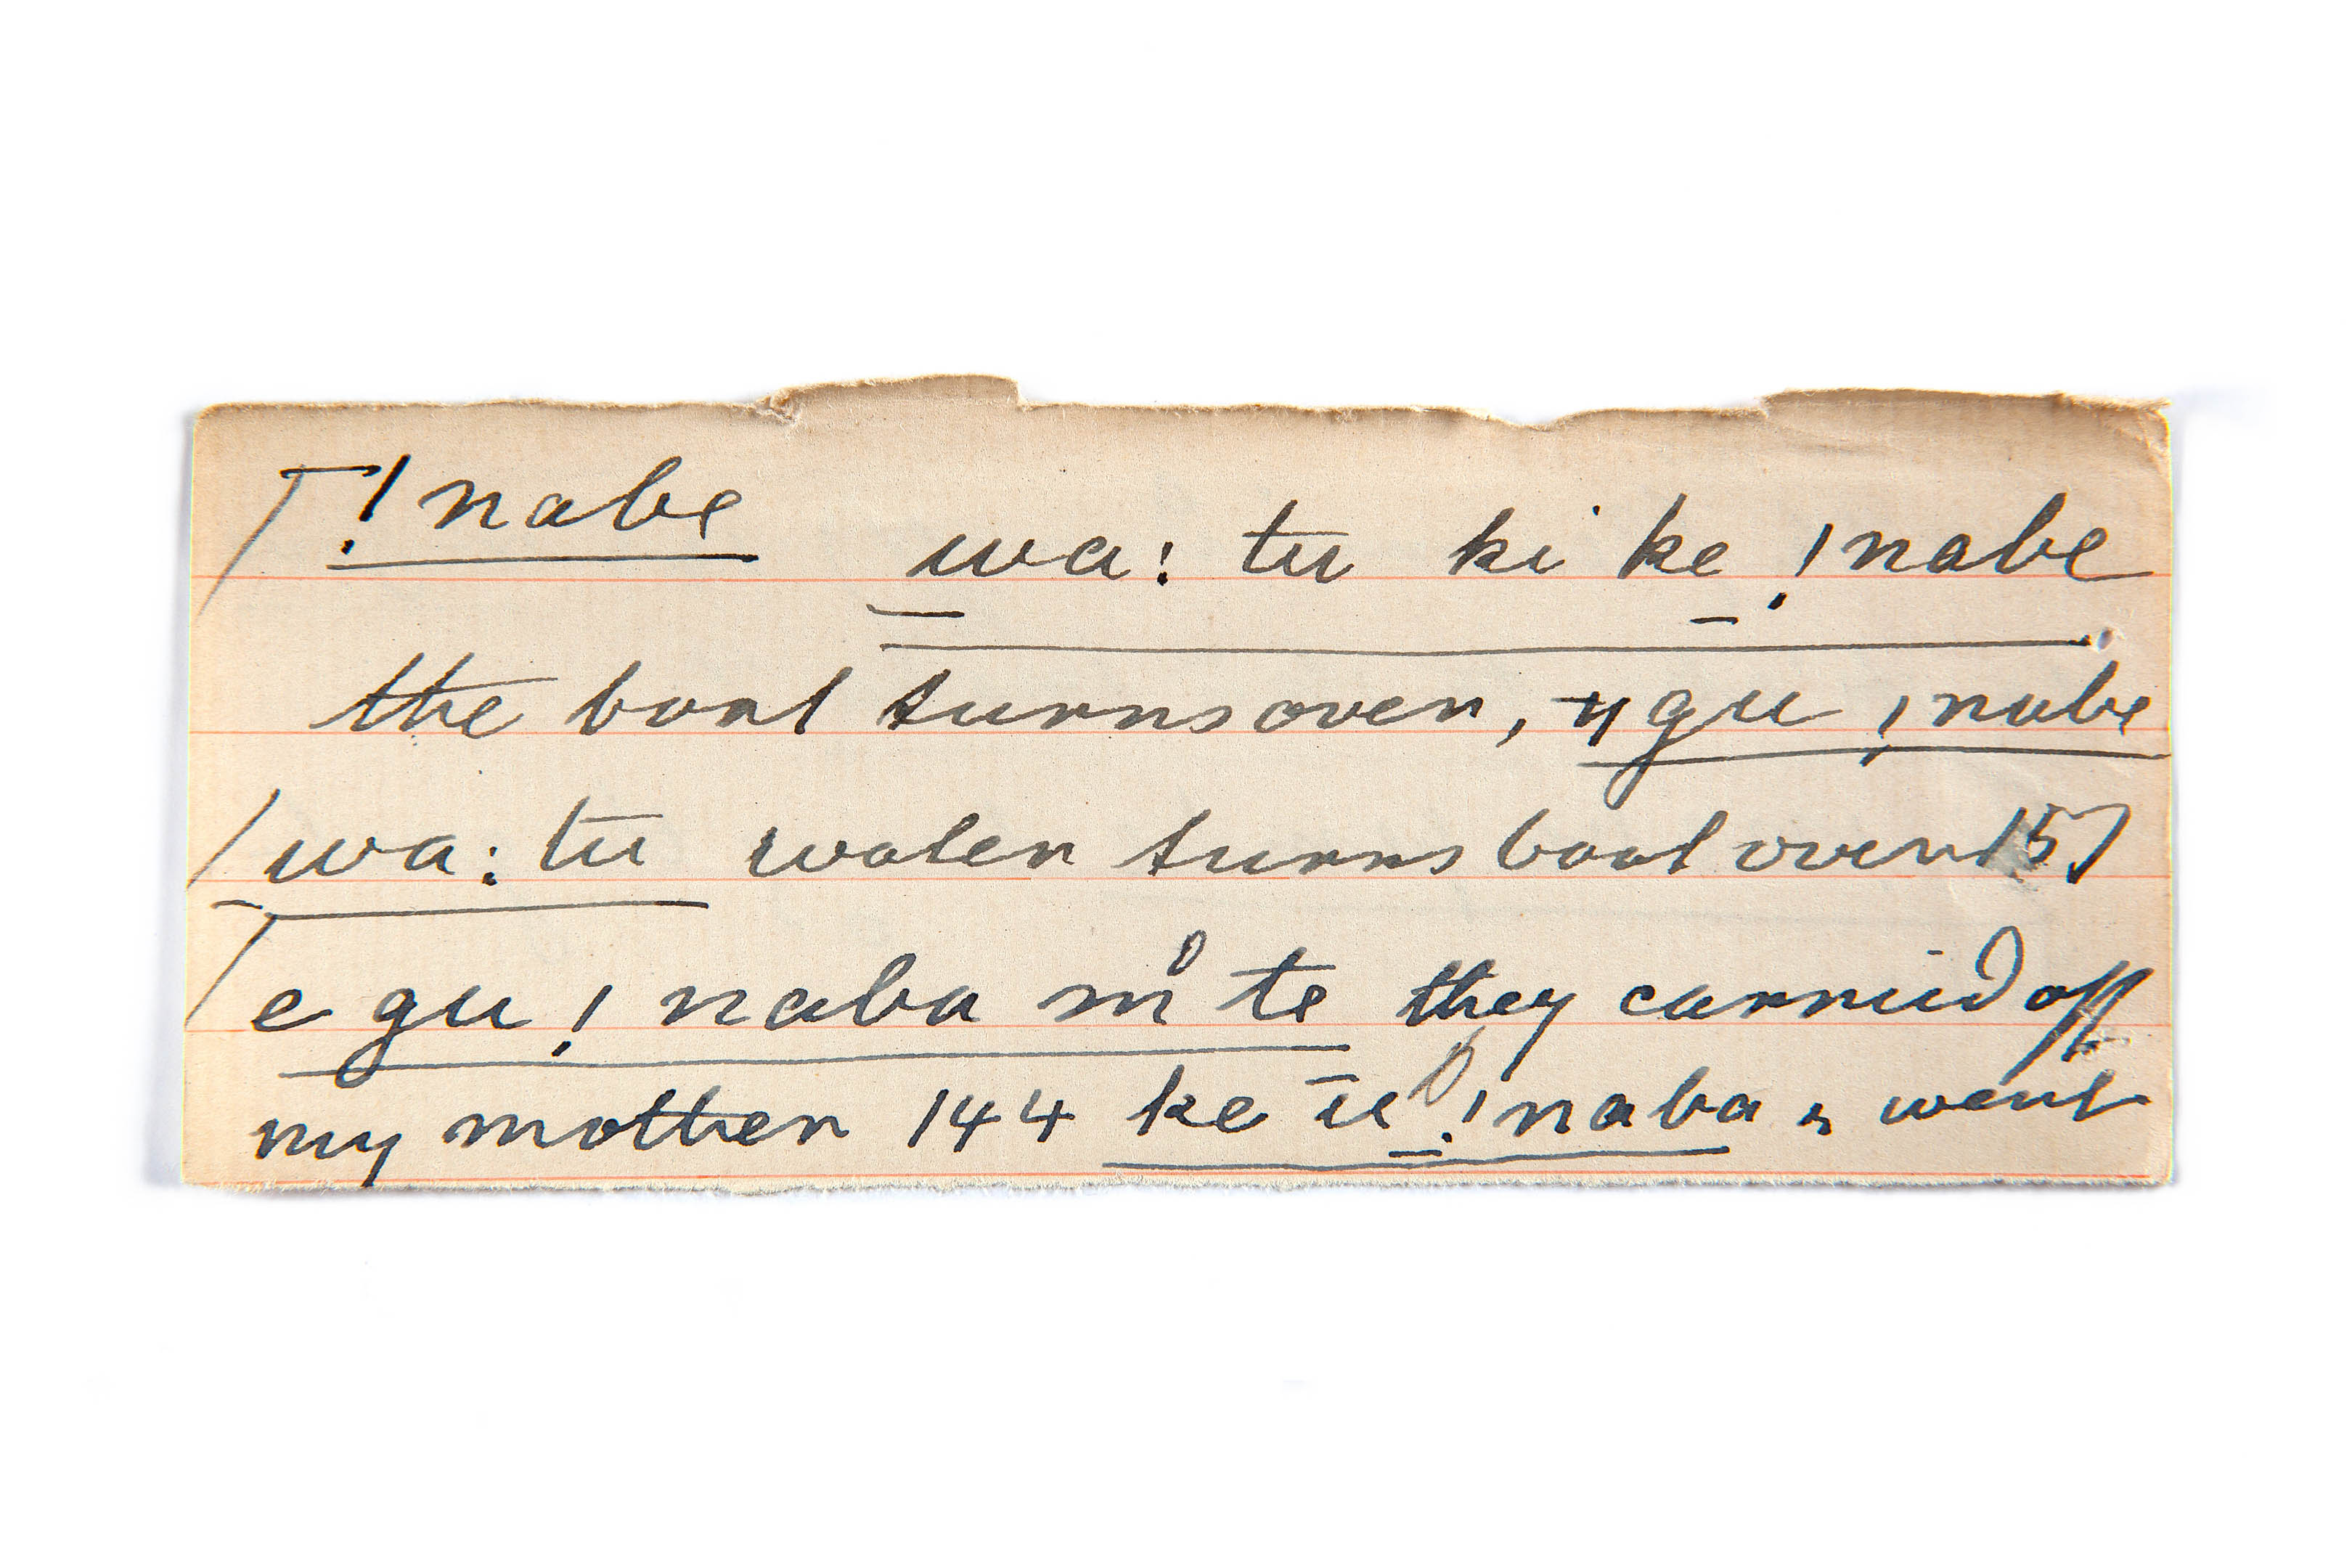 !nabe wa: tu ki ke !nabe
the boat turns over, ŋgu !nabe
wa: tu water turns boat over 157
e gu !naba m⁰ te they carried off
my mother 144 ke ū !naba went